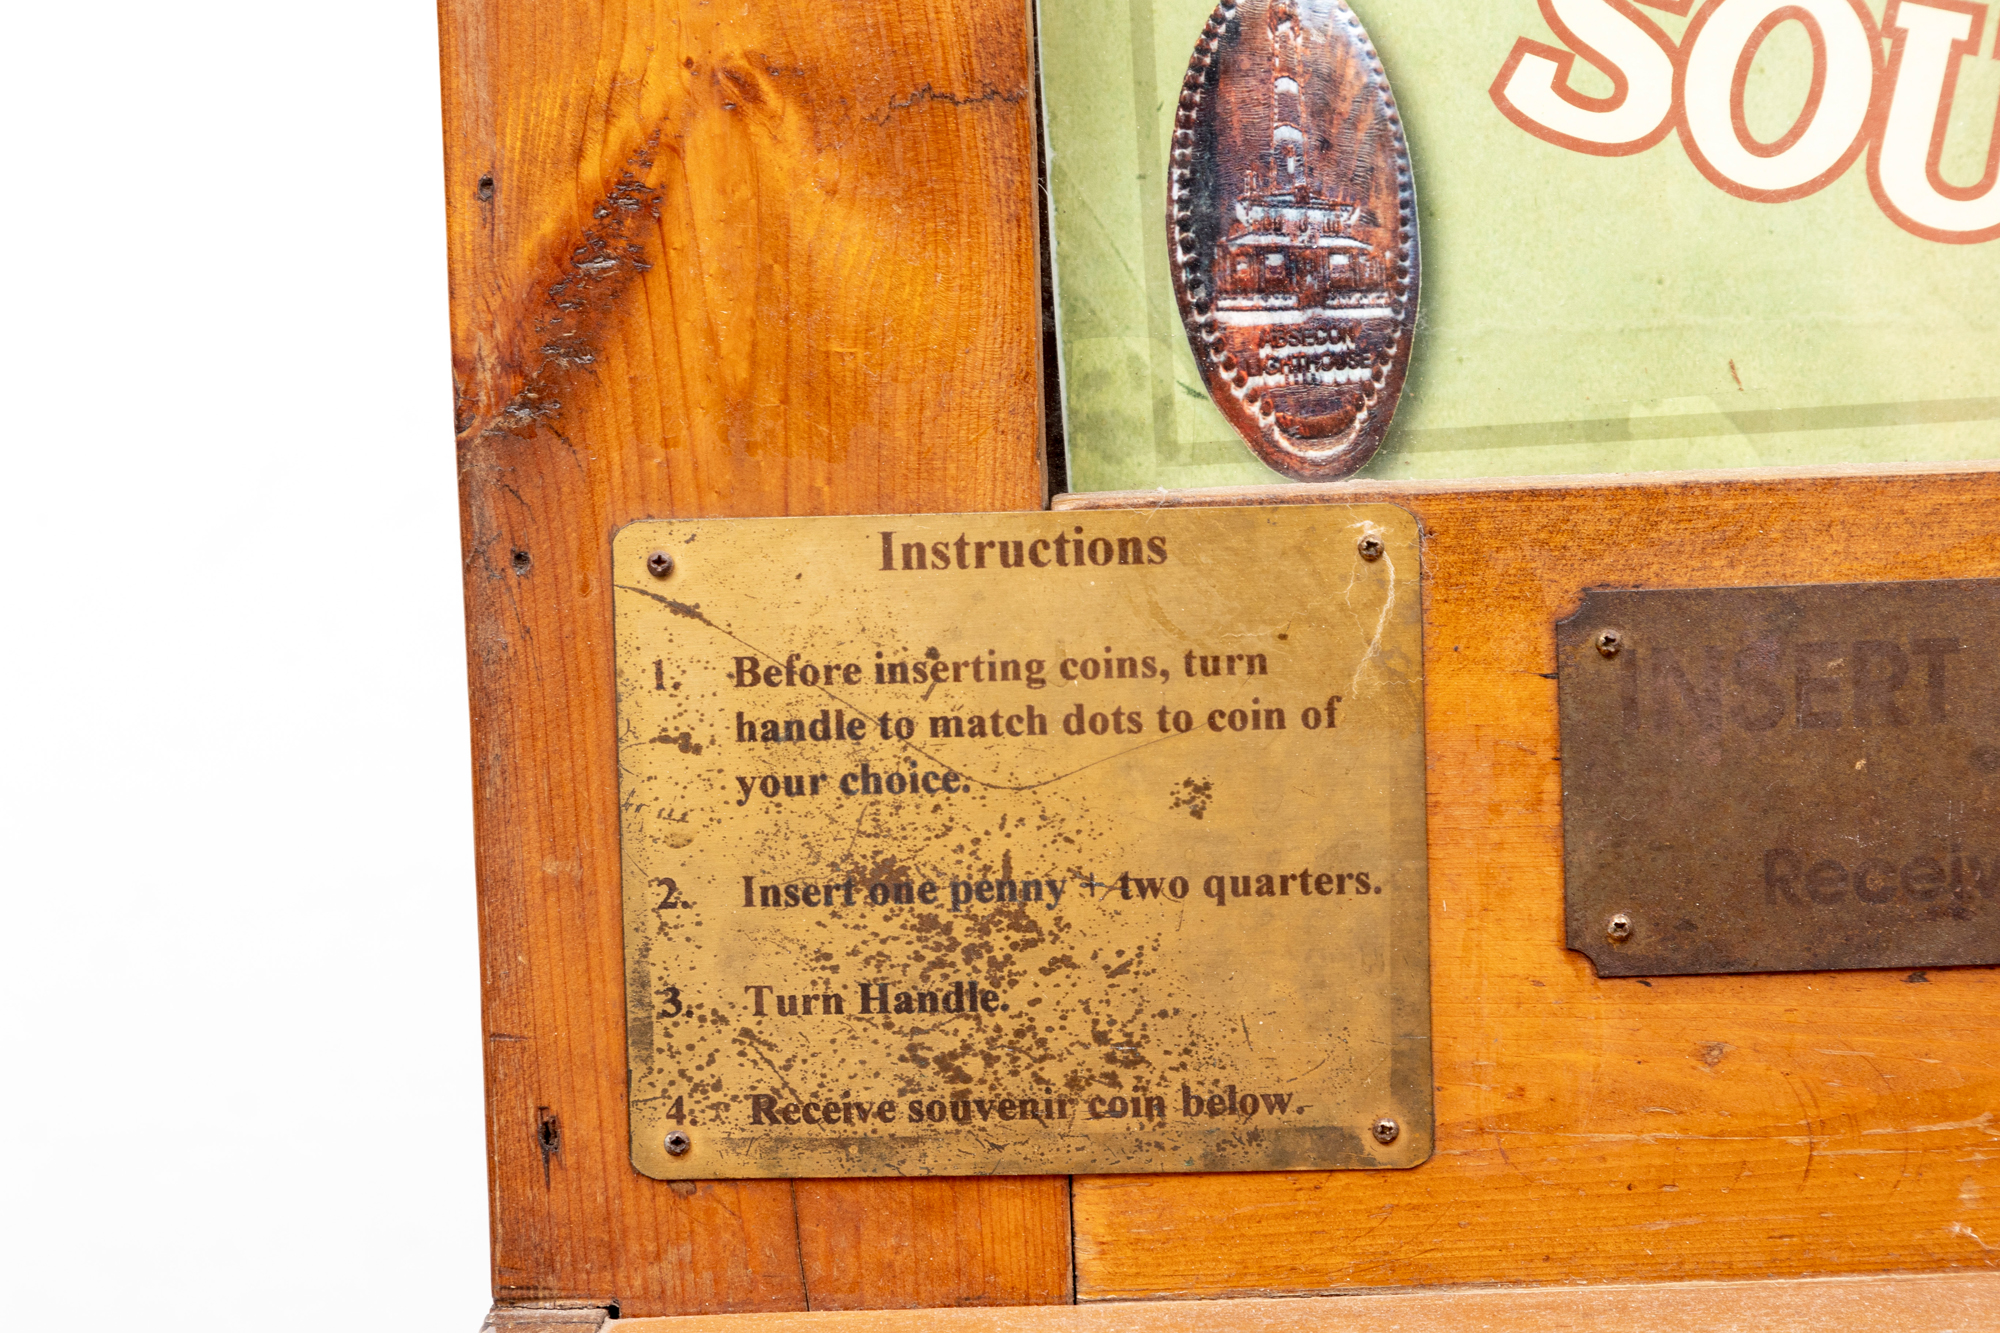 SOU
ABSECON
LIGHTHOUSE
Instructions
1. Before inserting coins, turn
handle to match dots to coin of
your choice.
2. Insert one penny + two quarters.
3. Turn Handle.
4. Receive souvenir coin below.
INSERT
Receiv